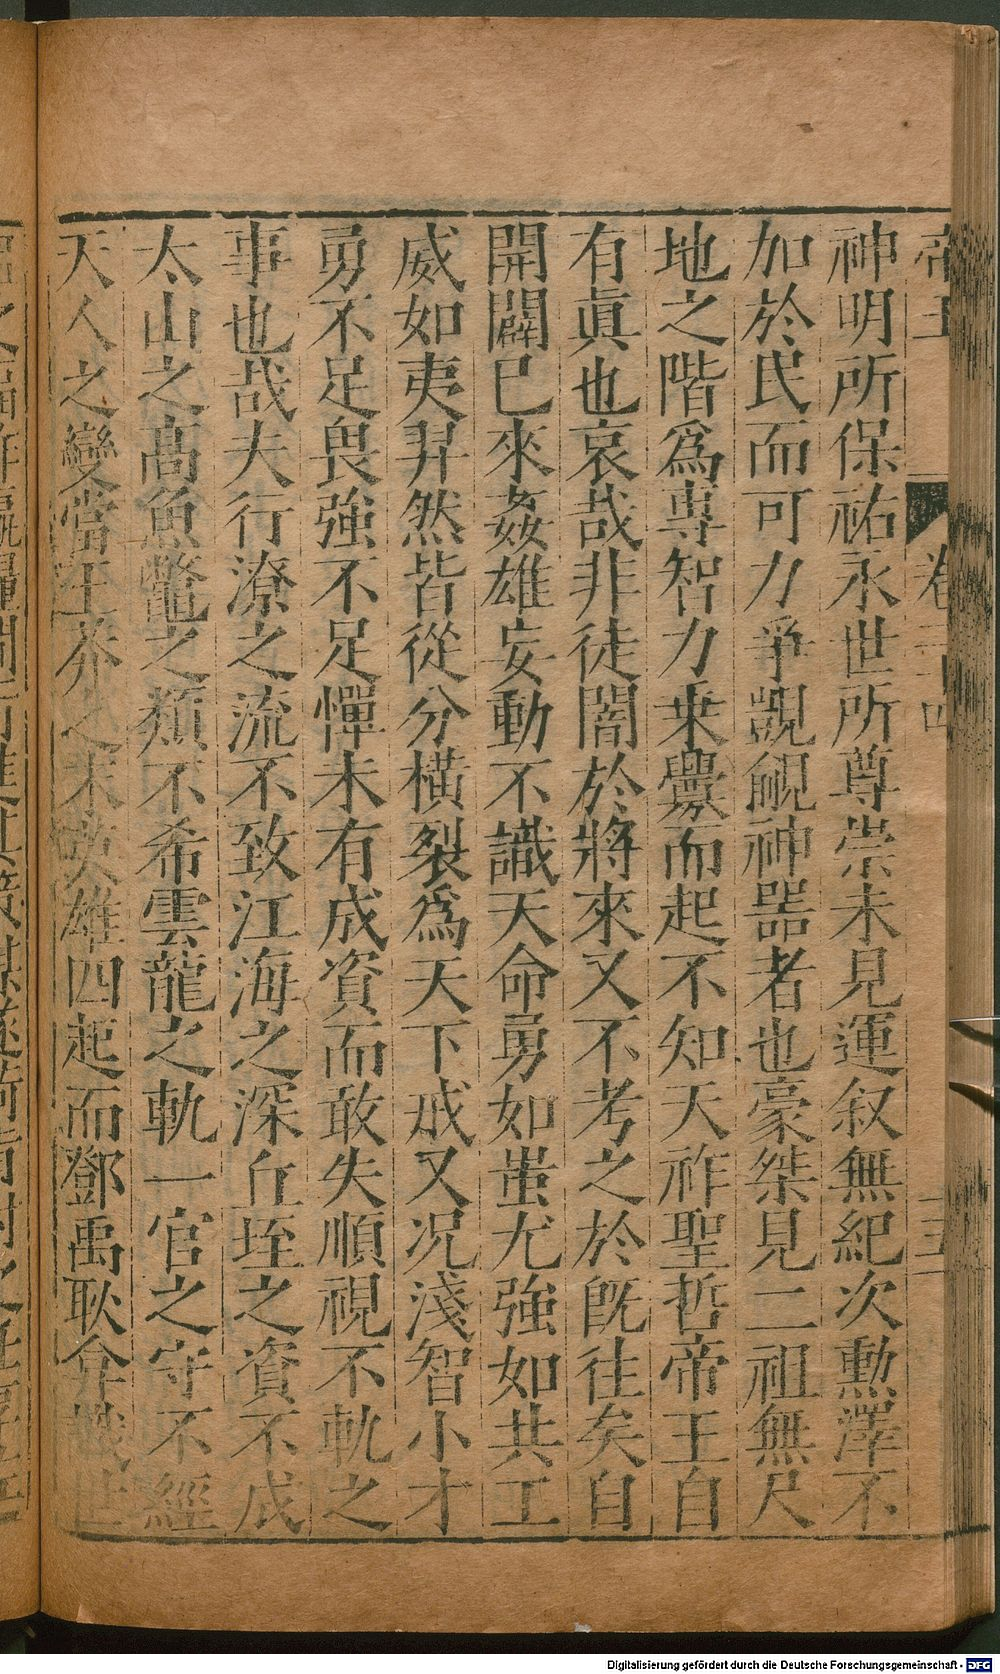 帝王 卷二十四 十三
神明所保祐永世所尊崇未見運叙無紀次勲澤不
加於民而可力爭覬覦神器者也豪桀見二祖無尺
地之階爲專智力乗釁而起不知天祚聖哲帝王自
有眞也哀哉非徒闇於將來又不考之於旣往矣自
開闢已來姦雄妄動不識天命勇如蚩尤強如共工
威如夷羿然皆從分橫裂爲天下戒又况淺智小才
勇不足畏強不足憚未有成資而敢失順視不軌之
事也哉夫行潦之流不致江海之深丘垤之資不成
太山之高魚鼈之類不希雲龍之軌一官之守不經
天人之變當王莽之末英雄四起而鄧禹耿弇
Digitalisierung gefördert durch die Deutsche Forschungsgemeinschaft - DFG